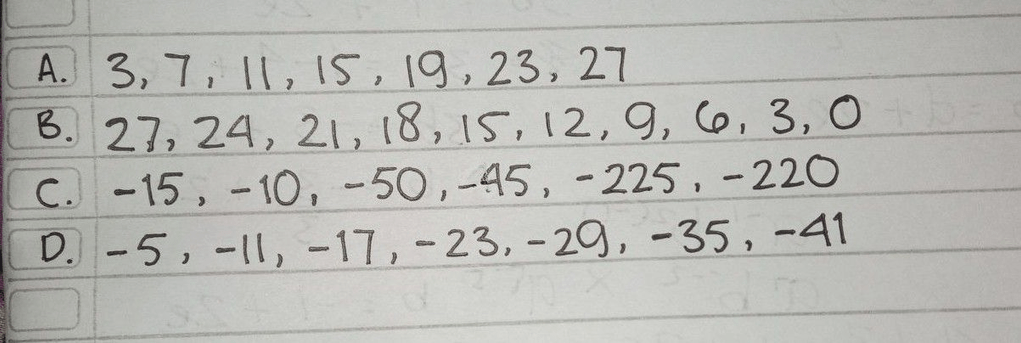 A. 3, 7, 11, 15, 19, 23, 27
B. 27, 24, 21, 18, 15, 12, 9, 6, 3, 0
C. -15, -10, -50, -45, -225, -220
D. -5, -11, -17, -23, -29, -35, -41